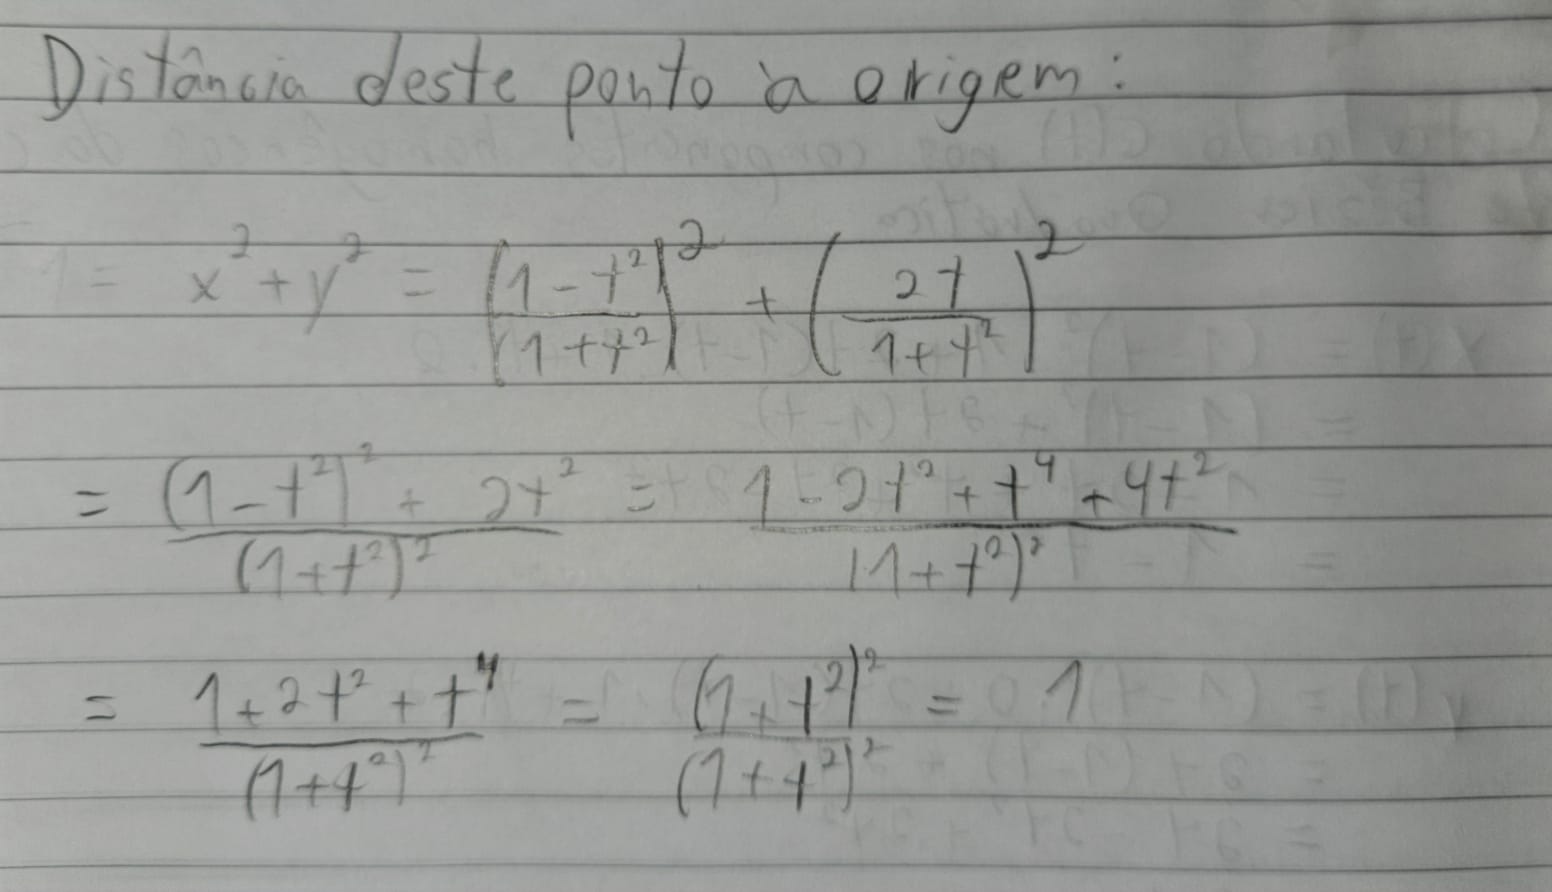 Distância deste ponto à origem:
1 = x² + y² = ((1 - t²)/(1 + t²))² + (2t/(1 + t²))²
= ((1 - t²)² + 2t²)/(1 + t²)² = (1 - 2t² + t⁴ + 4t²)/(1 + t²)²
= (1 + 2t² + t⁴)/(1 + t²)² = (1 + t²)²/(1 + t²)² = 1